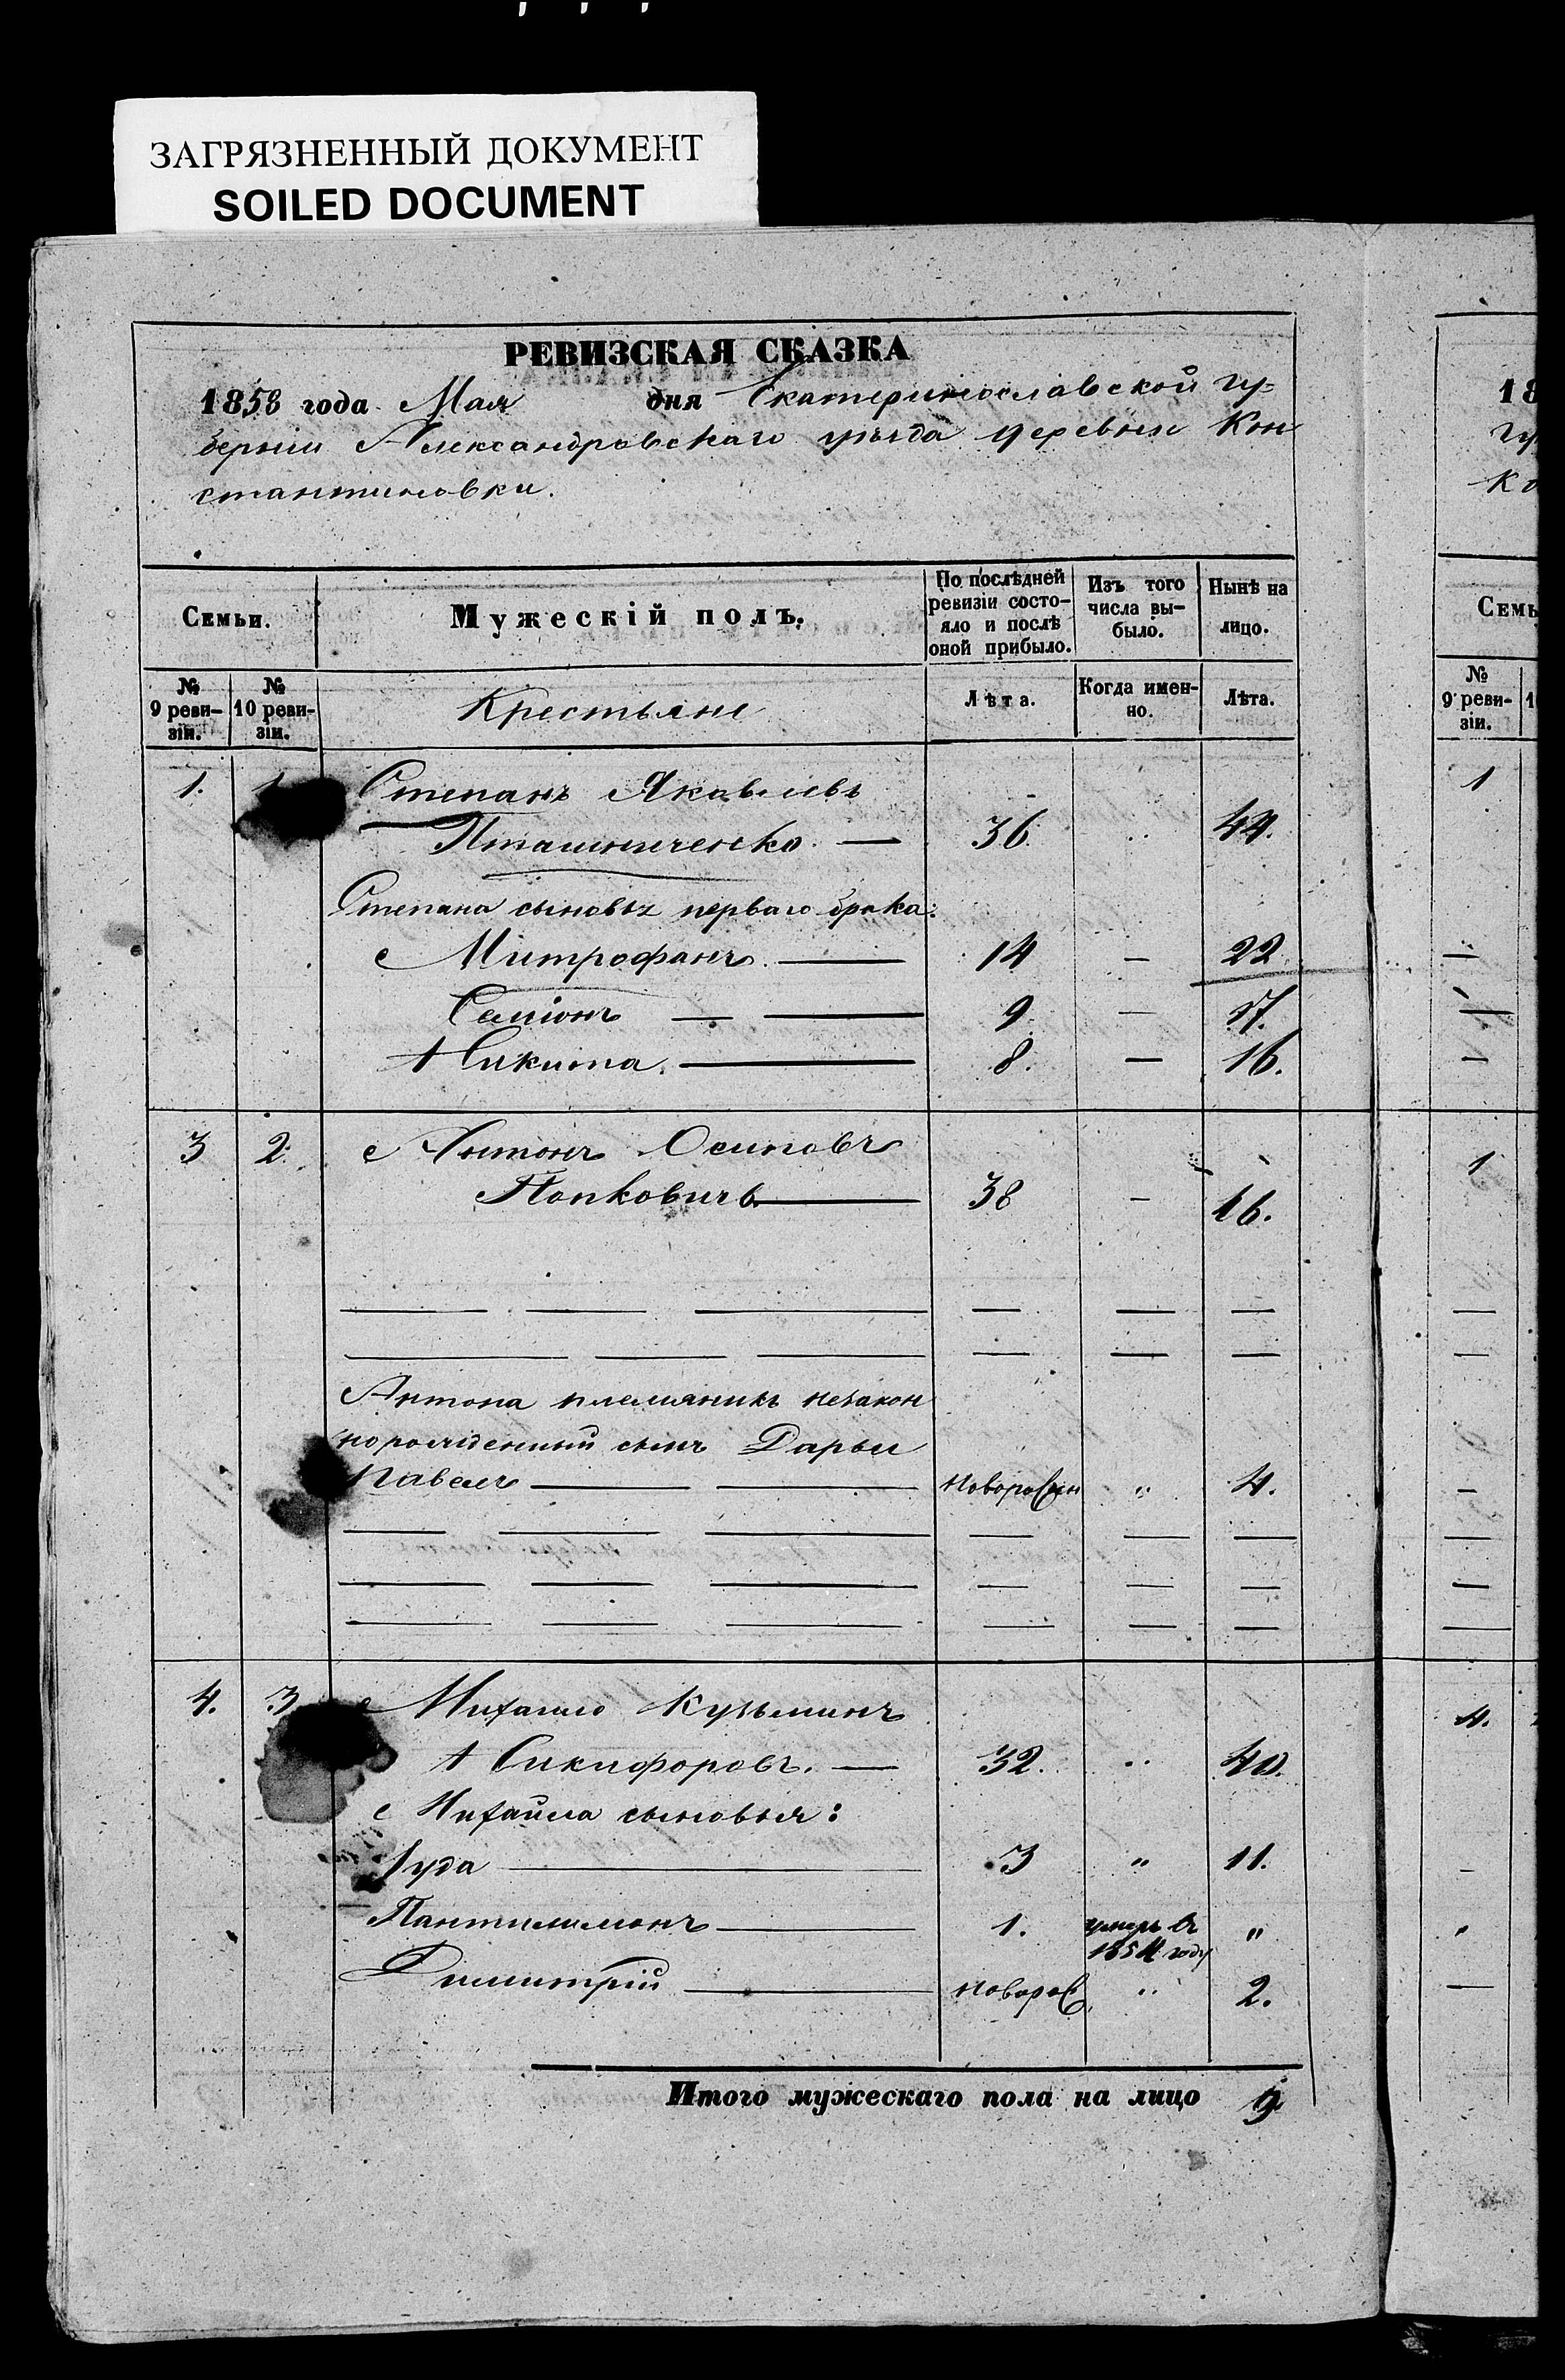 ЗАГРЯЗНЕННЫЙ ДОКУМЕНТ
SOILED DOCUMENT
РЕВИЗСКАЯ СКАЗКА
1858 года Мая дня Екатеринославской гу-
берніи Александровскаго уѣзда деревни Кон
стантиновки.
Семьи.
Мужескій полъ.
По послѣдней ревизіи состо-яло и послѣ оной прибыло.
Изъ того числа вы-было.
Нынѣ на лицо.
№ 9 реви-зіи.
№ 10 реви-зіи.
Крестьяне
Лѣта.
Когда имен-но.
Лѣта.
1. 1 Степанъ Яковлевъ
Пташниченко. — 36. „ 44.
Степана сыновья перваго брака:
Митрофанъ. — 14 — 22
Семіонъ — — 9 — 17.
Никита. — 8. — 16.
3 2. Антонъ Осиповъ
Попковичъ — 38 — 46.
Антона племяникъ незакон
норожденный сынъ Дарьи
Павелъ — — новорожден „ 4.
4. 3 Михайло Кузьминъ
Никифоровъ. — 32. „ 40.
Михайла сыновья:
Іуда — 3 „ 11.
Пантилимонъ — 1. умеръ въ „
1854 году
Димитрій — новорож „ 2.
Итого мужескаго пола на лицо 9
18
Гу
Ко
Семь
№
9 реви-
зіи.
1
1
1
4.